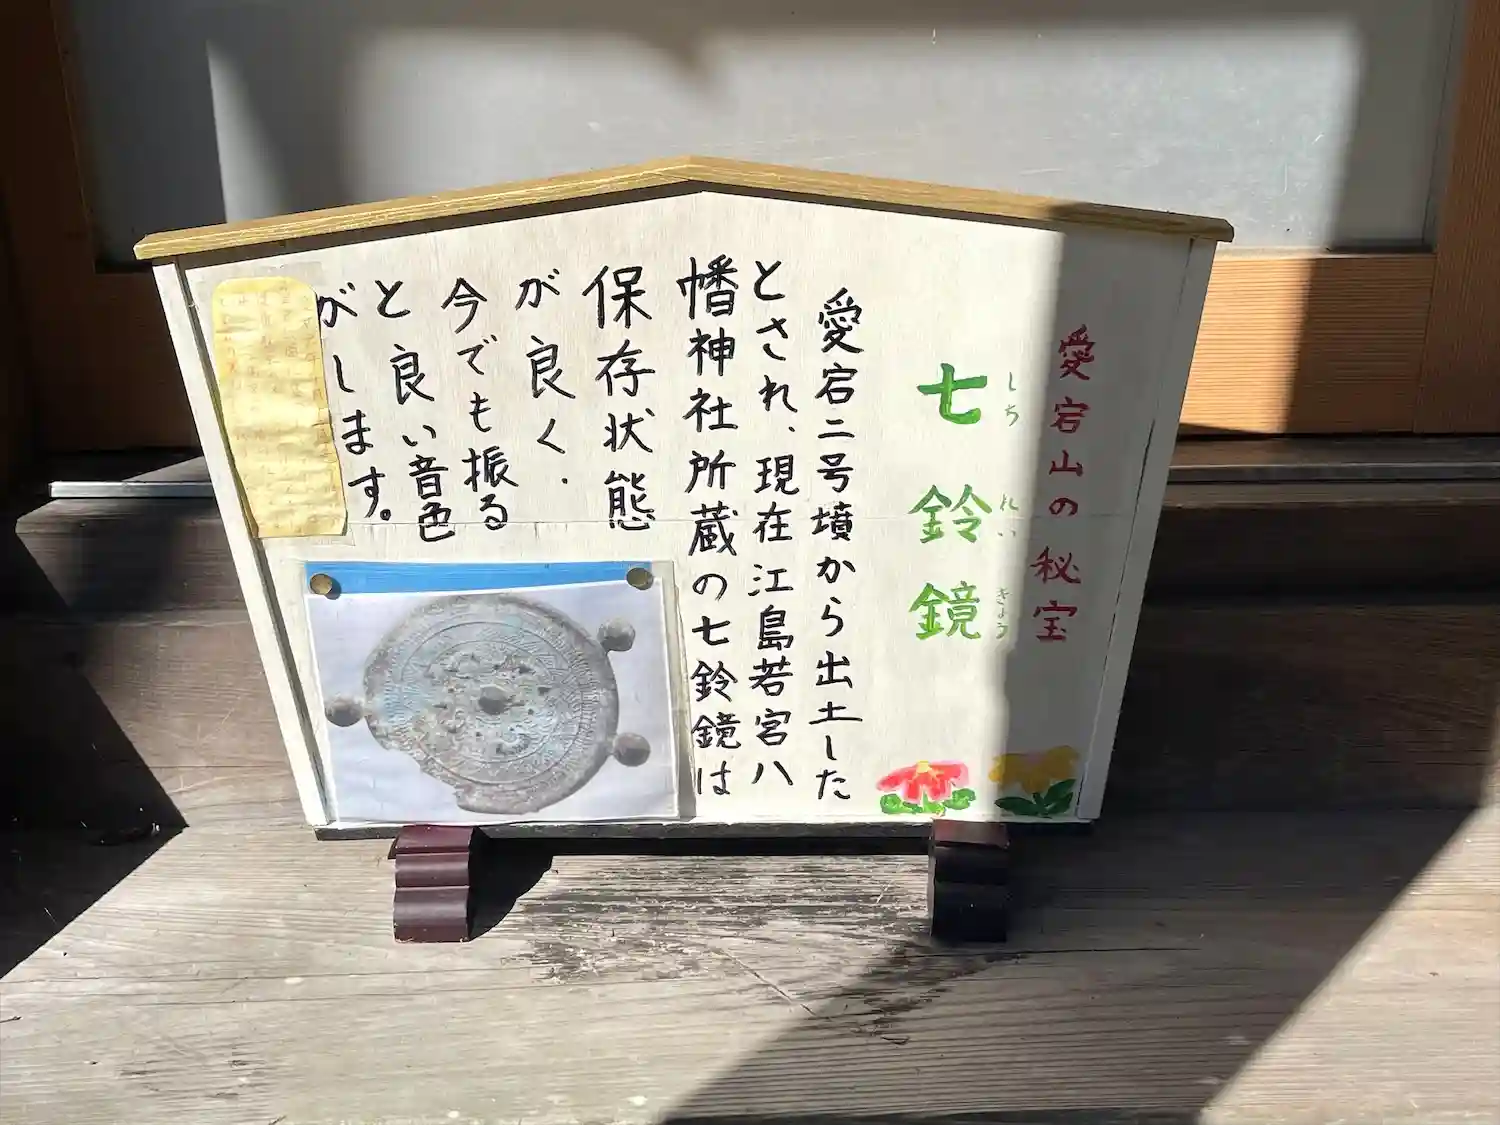 愛宕山の秘宝
七鈴鏡
しちれいきょう
愛宕二号墳から出土した
とされ、現在江島若宮八
幡神社所蔵の七鈴鏡は
保存状態
が良く、
今でも振る
と良い音色
がします。